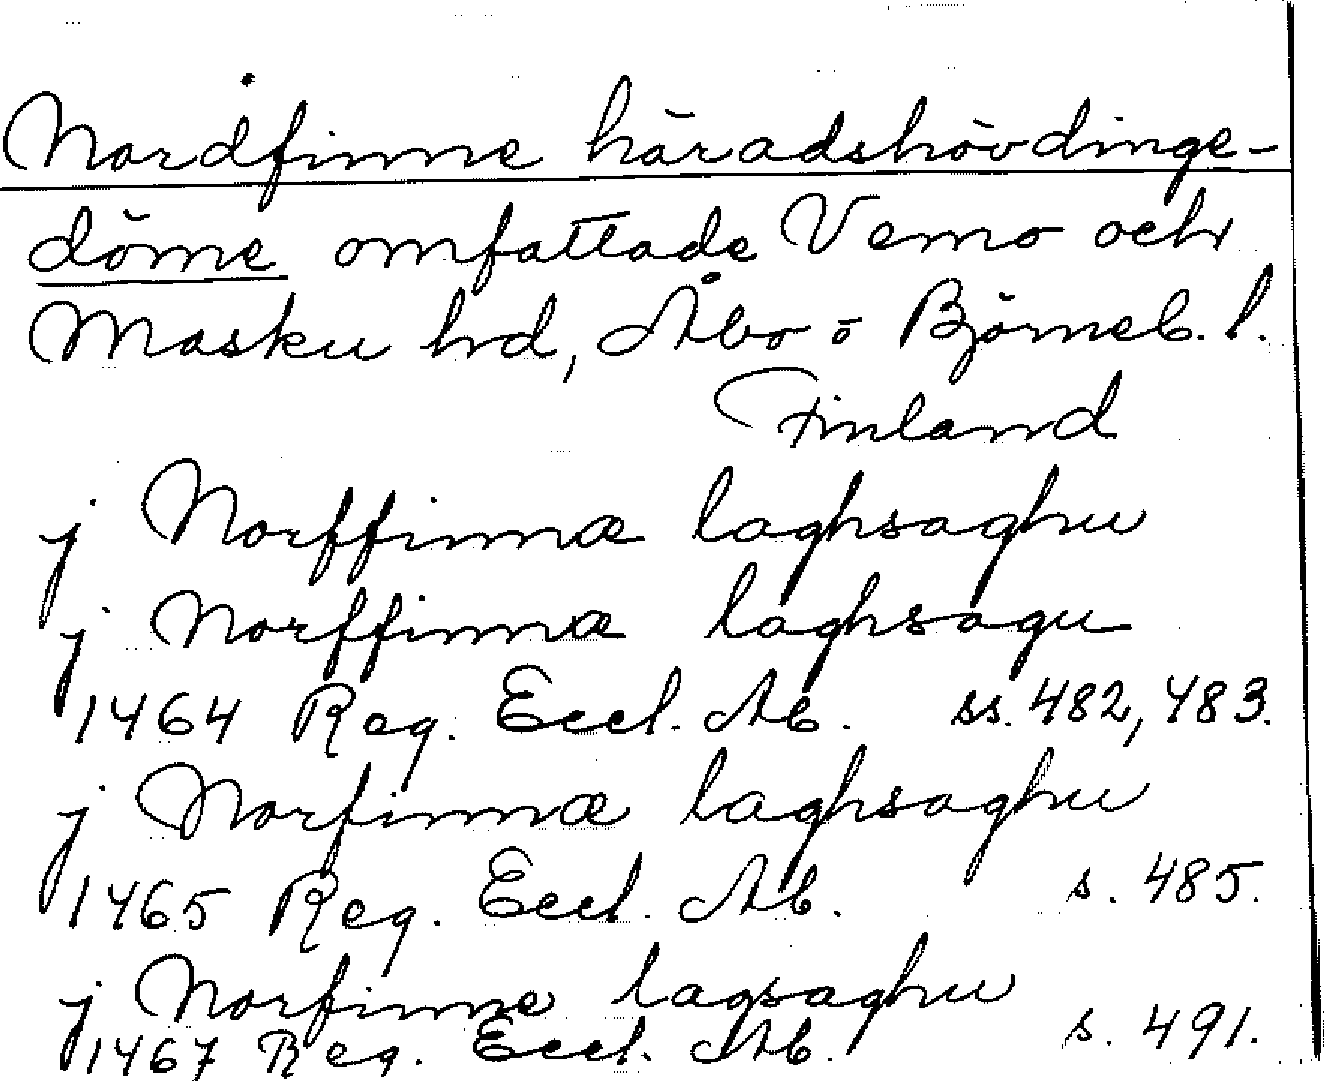 Nordfinne häradshövdinge-
döme omfattade Vemo och
Masku hd, Åbo o Björneb. l.
Finland
j Norffinnæ laghsaghu
j Norffinnæ laghsagu
1464 Reg. Eccl. Ab. ss. 482, 483.
j Norfinnæ laghsaghu
1465 Reg. Eccl. Ab. s. 485.
j Norfinne lagsaghu
1467 Reg. Eccl. Ab. s. 491.